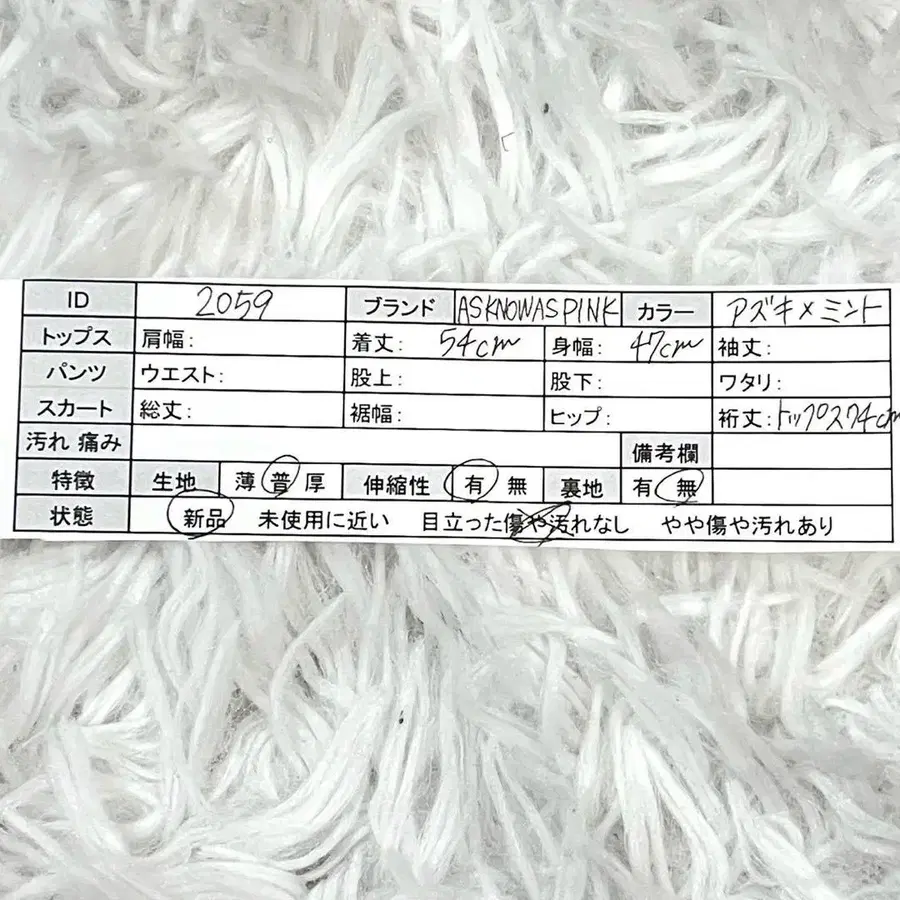 ID 2059 ブランド ASKNOWASPINK カラー アズキ×ミント
トップス 肩幅: 着丈: 54cm 身幅: 47cm 袖丈:
パンツ ウエスト: 股上: 股下: ワタリ:
スカート 総丈: 裾幅: ヒップ: 裄丈: トップス74cm
汚れ 痛み 備考欄
特徴 生地 薄 普 厚 伸縮性 有 無 裏地 有 無
状態 新品 未使用に近い 目立った傷や汚れなし やや傷や汚れあり